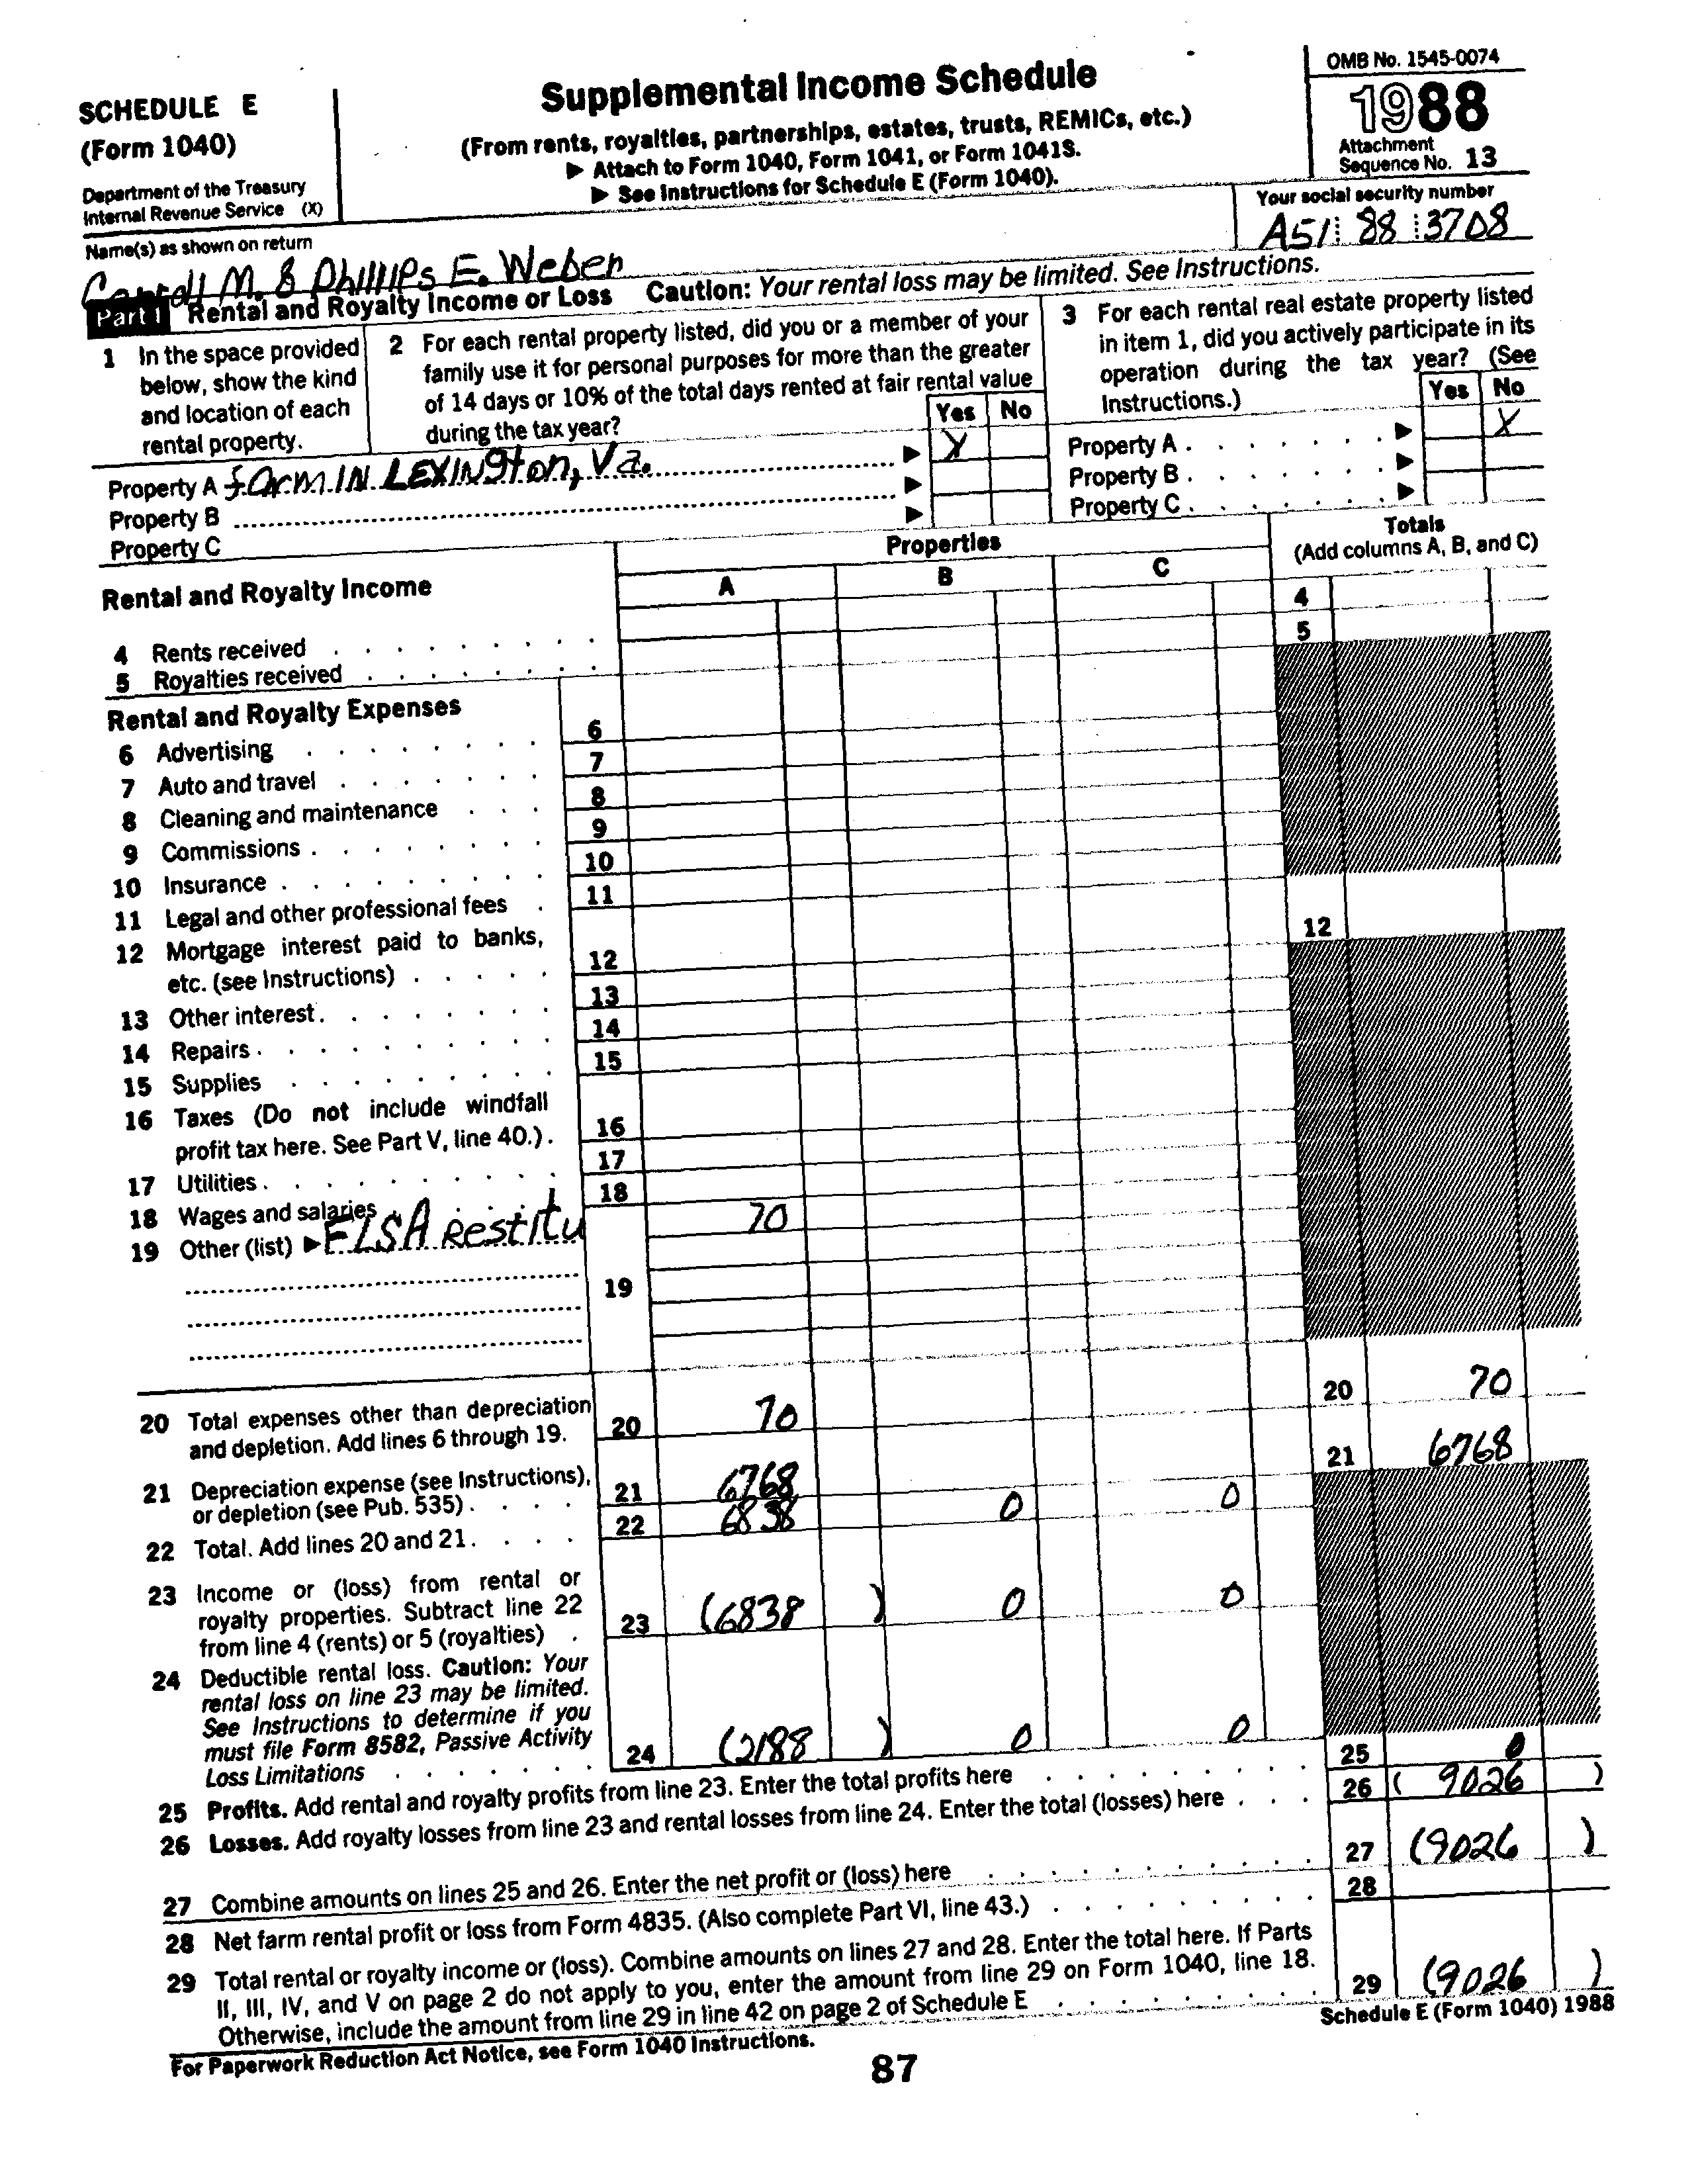 SCHEDULE E
(Form 1040)
Department of the Treasury
Internal Revenue Service (X)
Supplemental Income Schedule
(From rents, royalties, partnerships, estates, trusts, REMICs, etc.)
▶ Attach to Form 1040, Form 1041, or Form 1041S.
▶ See Instructions for Schedule E (Form 1040).
OMB No. 1545-0074
1988
Attachment
Sequence No. 13
Name(s) as shown on return
M. & Phillips E. Weber
Your social security number
A51 88 3708
Part I Rental and Royalty Income or Loss Caution: Your rental loss may be limited. See Instructions.
1 In the space provided
below, show the kind
and location of each
rental property.
2 For each rental property listed, did you or a member of your
family use it for personal purposes for more than the greater
of 14 days or 10% of the total days rented at fair rental value
during the tax year?
Yes No
3 For each rental real estate property listed
in item 1, did you actively participate in its
operation during the tax year? (See
Instructions.)
Yes No
Property A farm IN LEXINgton, Va. ▶ X
Property B ▶
Property C ▶
Property A ▶ X
Property B ▶
Property C ▶
Rental and Royalty Income
Properties
A B C
Totals
(Add columns A, B, and C)
4 Rents received 4
5 Royalties received 5
Rental and Royalty Expenses
6 Advertising 6
7 Auto and travel 7
8 Cleaning and maintenance 8
9 Commissions 9
10 Insurance 10
11 Legal and other professional fees 11
12 Mortgage interest paid to banks,
etc. (see Instructions) 12 12
13 Other interest 13
14 Repairs 14
15 Supplies 15
16 Taxes (Do not include windfall
profit tax here. See Part V, line 40.) 16
17 Utilities 17
18 Wages and salaries 18
19 Other (list) ▶ FLSA Restitu 70
19
20 Total expenses other than depreciation
and depletion. Add lines 6 through 19. 20 70 20 70
21 Depreciation expense (see Instructions),
or depletion (see Pub. 535) 21 6768 21 6768
22 Total. Add lines 20 and 21 22 6838 0 0
23 Income or (loss) from rental or
royalty properties. Subtract line 22
from line 4 (rents) or 5 (royalties) 23 (6838 ) 0 0
24 Deductible rental loss. Caution: Your
rental loss on line 23 may be limited.
See Instructions to determine if you
must file Form 8582, Passive Activity
Loss Limitations 24 (2188 ) 0 0
25 Profits. Add rental and royalty profits from line 23. Enter the total profits here 25 0
26 Losses. Add royalty losses from line 23 and rental losses from line 24. Enter the total (losses) here 26 ( 9026 )
27 Combine amounts on lines 25 and 26. Enter the net profit or (loss) here 27 (9026 )
28 Net farm rental profit or loss from Form 4835. (Also complete Part VI, line 43.) 28
29 Total rental or royalty income or (loss). Combine amounts on lines 27 and 28. Enter the total here. If Parts
II, III, IV, and V on page 2 do not apply to you, enter the amount from line 29 on Form 1040, line 18.
Otherwise, include the amount from line 29 in line 42 on page 2 of Schedule E 29 (9026 )
For Paperwork Reduction Act Notice, see Form 1040 Instructions.
Schedule E (Form 1040) 1988
87